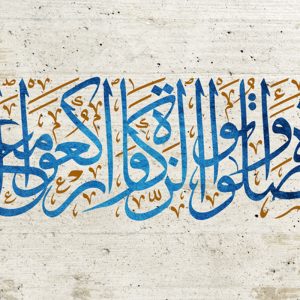 الصلوة وآتوا الزكوة واركعوا مع